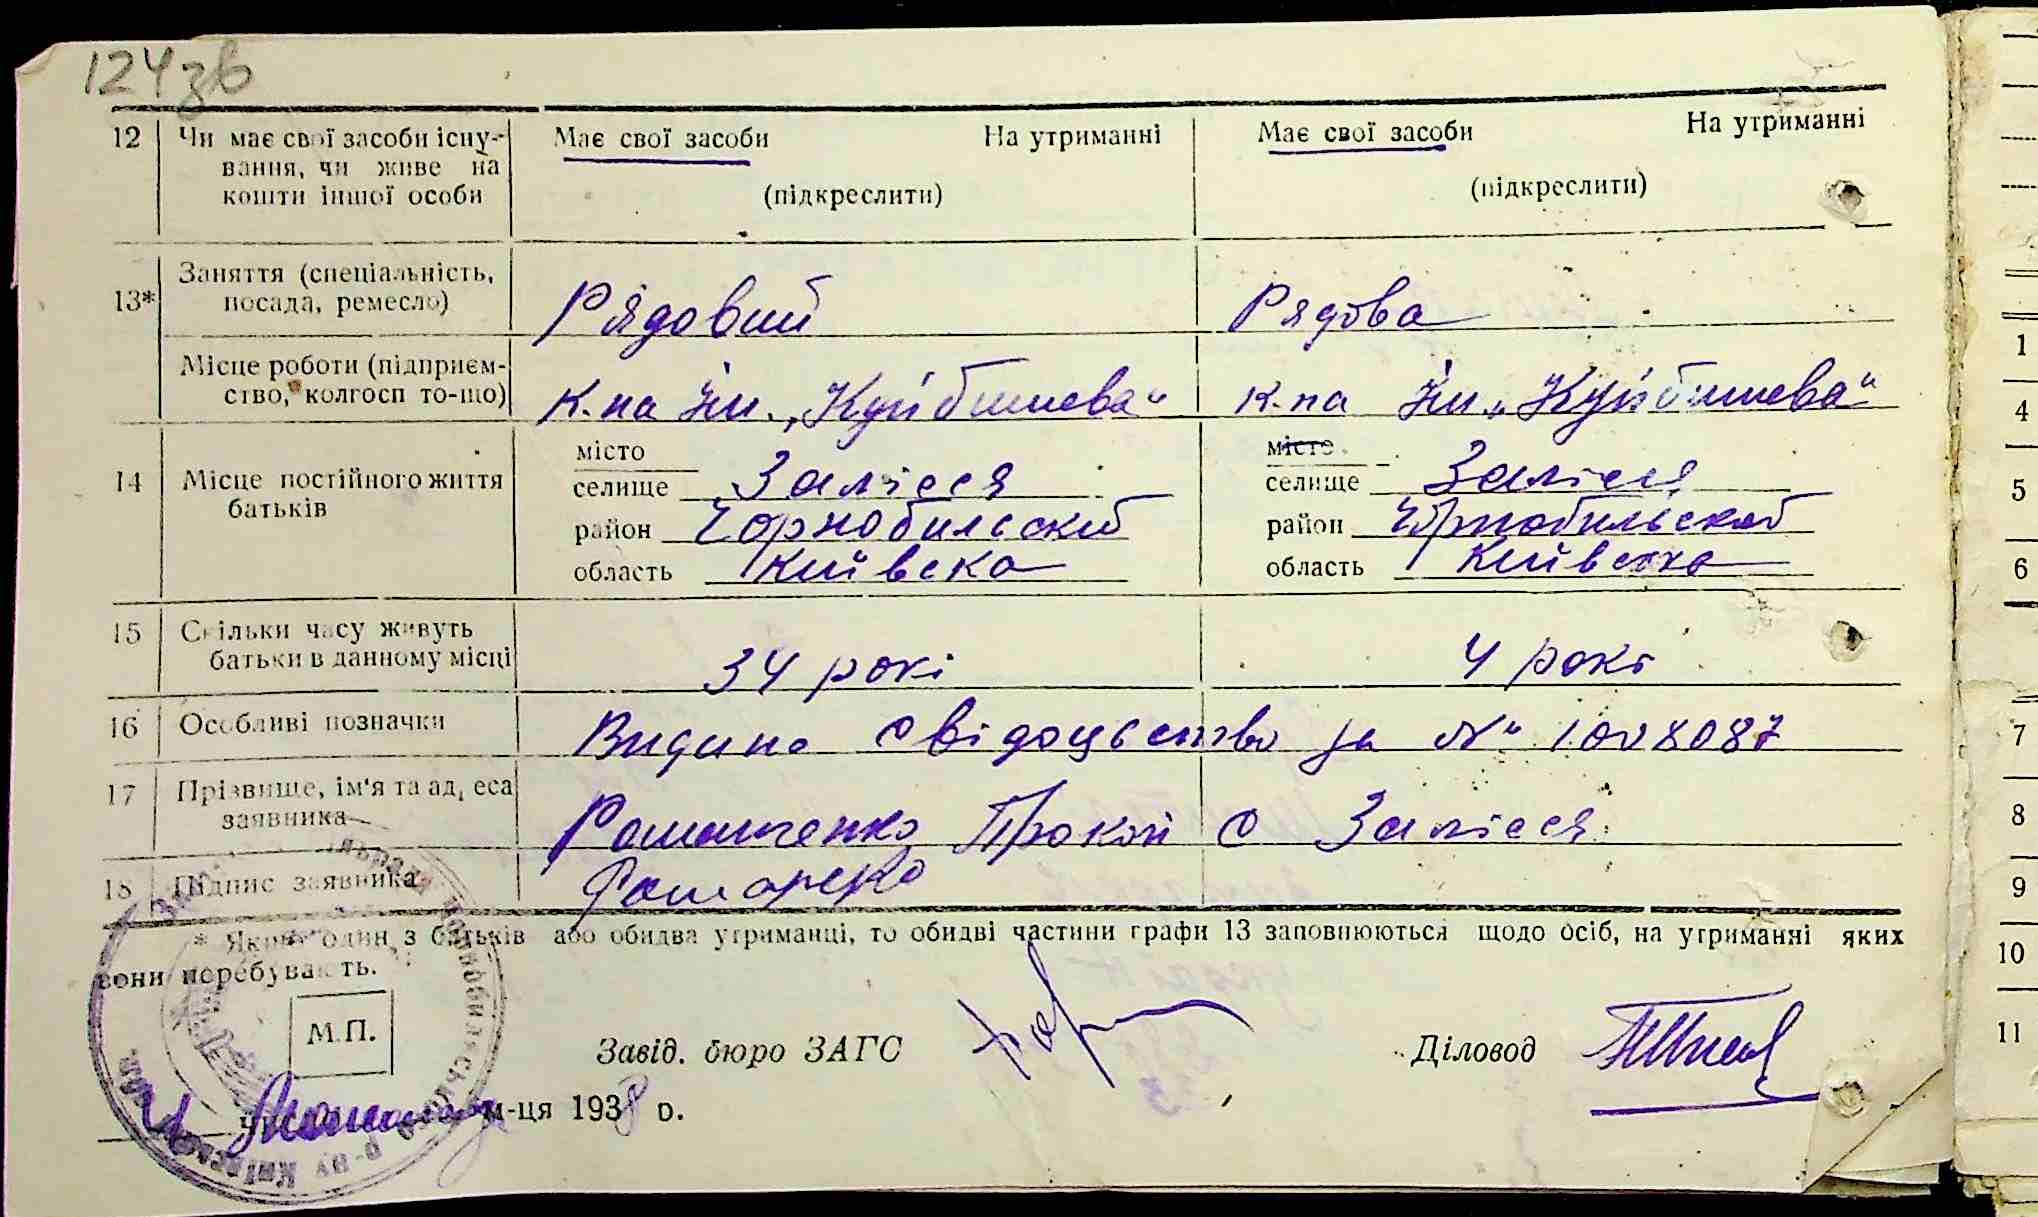 124зв
12 Чи має свої засоби існу- Має свої засоби На утриманні Має свої засоби На утриманні
вання, чи живе на
кошти іншої особи (підкреслити) (підкреслити)
13* Заняття (спеціальність,
посада, ремесло) Рядовий Рядова
Місце роботи (підприєм-
ство, колгосп то-що) к-па Ім. „Куйбишева“ к-па Ім. „Куйбишева“
місто місто
14 Місце постійного життя селище Залісся селище Залісся
батьків район Чорнобильский район Чорнобильской
область Київска область Київска
15 Скільки часу живуть
батьки в данному місці 34 рокі 4 рокі
16 Особливі позначки Видано свідоцьство за № 1008087
17 Прізвище, ім'я та адреса
заявника Романченко Прокоп с Залісся
18 Підпис заявника
* Якщо один з батьків або обидва утриманці, то обидві частини графи 13 заповнюються щодо осіб, на утриманні яких
вони перебувають.
М.П.
Завід. бюро ЗАГС Діловод
м-ця 1938 р.
1
4
5
6
7
8
9
10
11